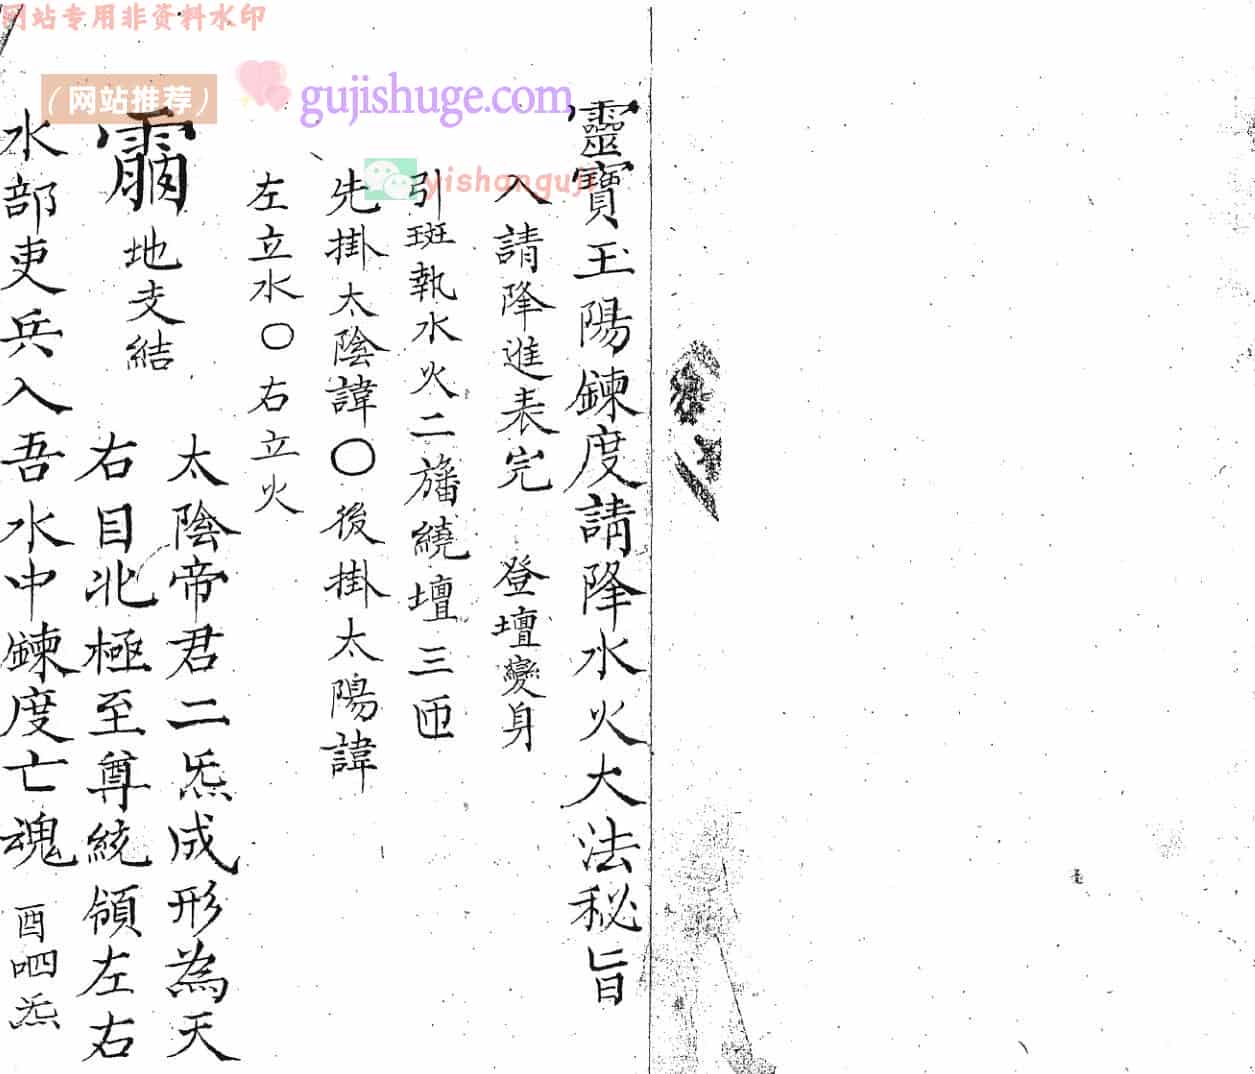 网站专用非资料水印
（网站推荐）
gujishuge.com
yishanguji
靈寶玉陽鍊度請降水火大法秘旨
入請降進表完 登壇變身
引班執水火二旛繞壇三匝
先掛太陰諱〇後掛太陽諱
左立水〇右立火
地支結
太陰帝君二炁成形為天
右目北極至尊統領左右
水部吏兵入吾水中鍊度亡魂 酉呬炁